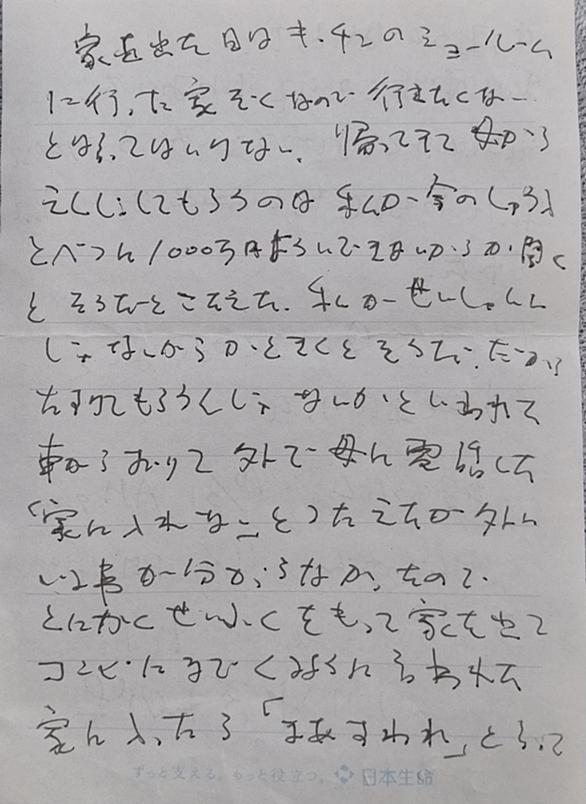 家を出た日はキッチンのショールーム
に行った家ぞくなので行きたくない
とはってはいけない、帰ってきて 母から
してもらうのは 私が今の
とべつに1000万は いでないからか 聞く
と そうだとこたえた、私が せいしんに
じゃないからかときくと そうだ、だから
たすけてもろうんじゃ ないかといわれて
車からおりて 外で 母に電話した
「家に入れない」と 外に
いる事が分からなかったので、
とにかくせいふくをもって家を出て
コンビニまでくるように言われた
家に入ったら「まあすわれ」と言って
ずっと支える。もっと役立つ。 日本生命